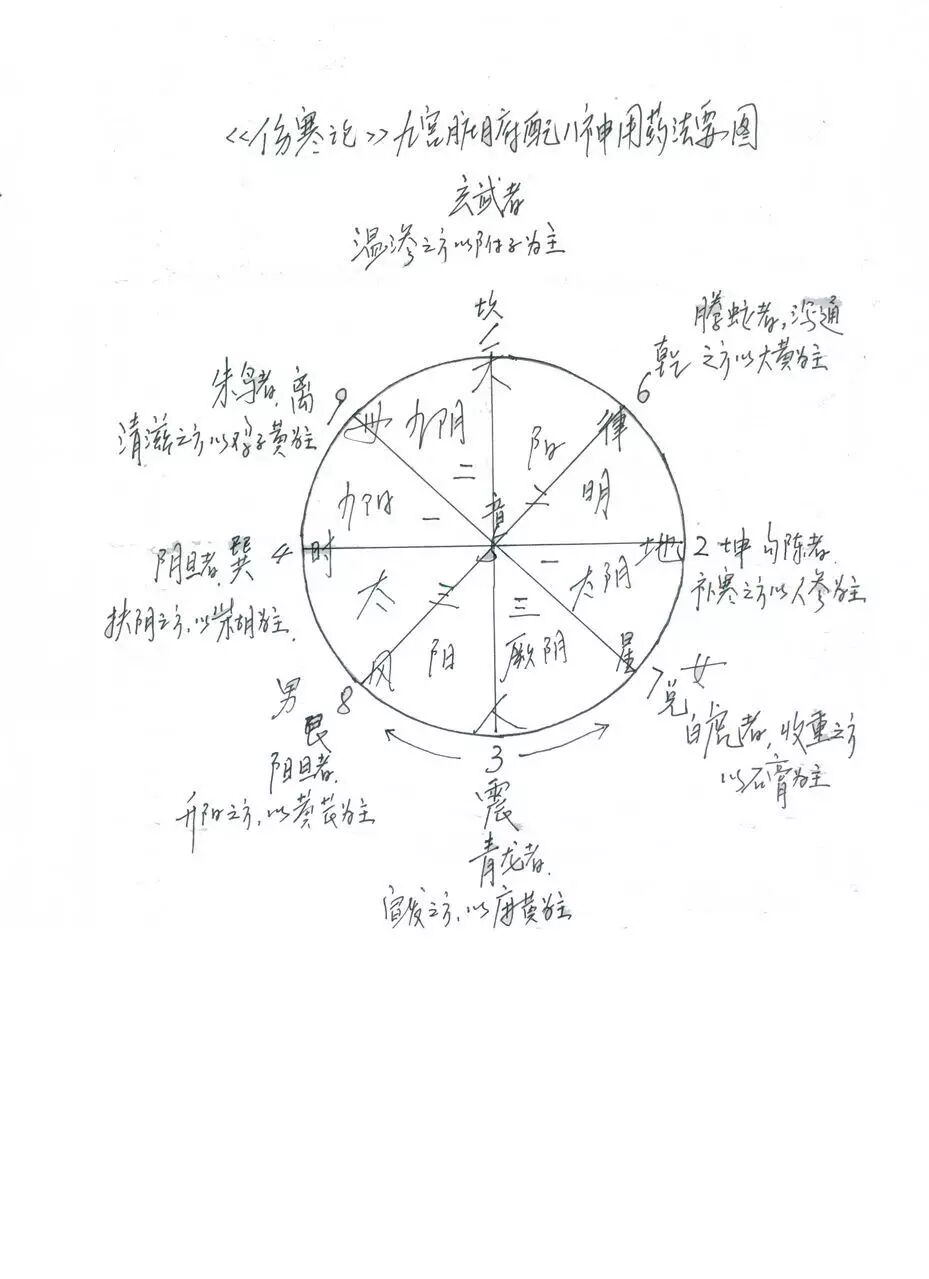 《伤寒论》九宫脏腑配八神用药法要图
玄武者
温渗之方以附子为主
坎
1
天
腾蛇者,沟通
乾 之方以大黄为主
6
律
朱鸟者,离
清滋之方以鸡子黄为主
9
少阴
二
阳
二
明
少阳
一
音
阴旦者,巽
扶阴之方,以柴胡为主
4
时
地
2 坤 勾陈者
补寒之方以人参为主
一
太阴
太
三
阳
风
三
厥阴
星
人
男
8
艮
阳旦者,
升阳之方,以黄芪为主
7
兑
女
白虎者,收重之方
以石膏为主
3
震
青龙者,
宣发之方,以麻黄为主